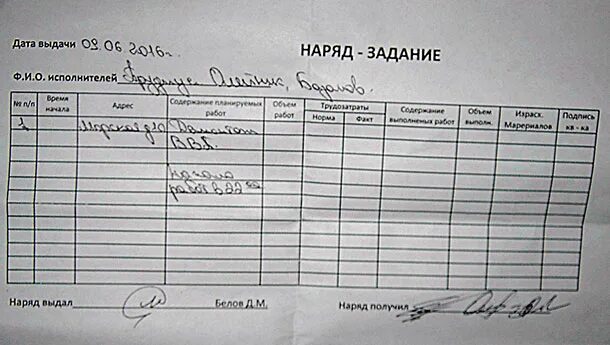 Дата выдачи 09.06 2016г.
НАРЯД - ЗАДАНИЕ
Ф.И.О. исполнителей Олейник,
№ п/п Время начала Адрес Содержание планируемых работ Объем работ Трудозатраты Норма Факт Содержание выполненных работ Объем выполн. Израсх. Марериалов Подпись кв - ка
1 Морская д10 Демонтаж
ВВБ.
начало
работ в 22 00
Наряд выдал Белов Д.М. Наряд получил